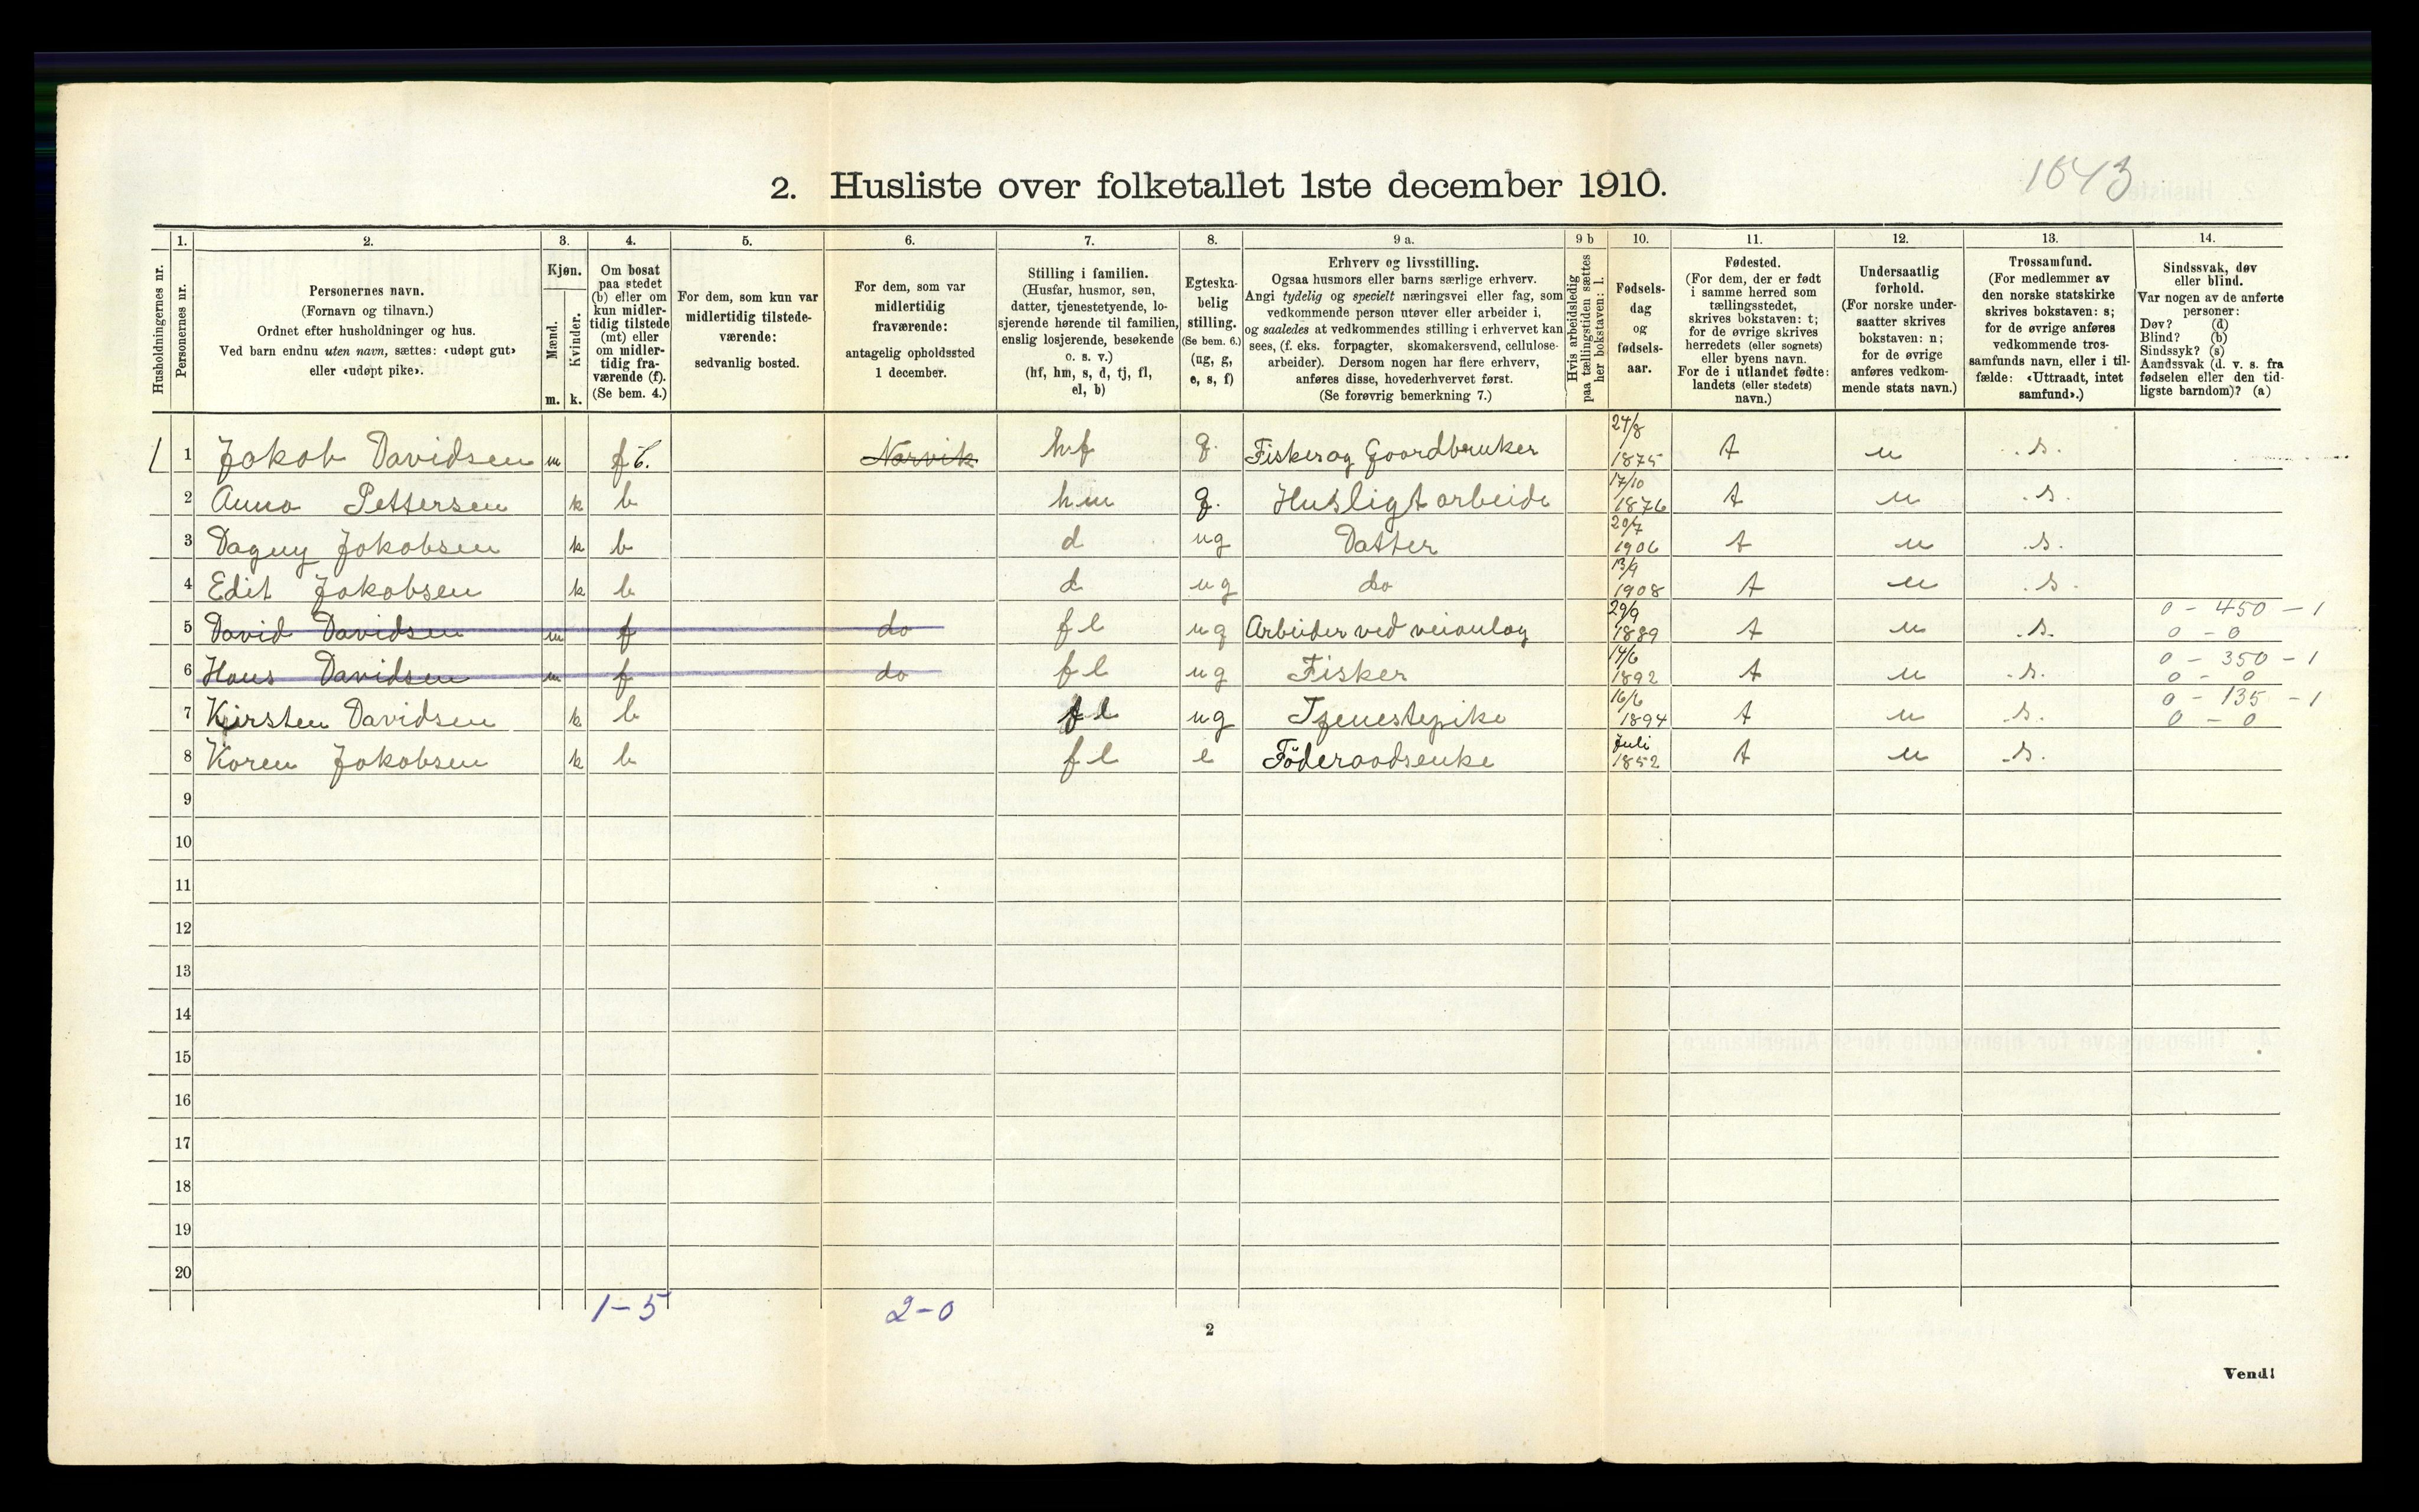 1043
2. Husliste over folketallet 1ste december 1910.
Husholdningernes nr.
1.
Personernes nr.
2.
Personernes navn.
(Fornavn og tilnavn.)
Ordnet efter husholdninger og hus.
Ved barn endnu uten navn, sættes: «udøpt gut»
eller «udøpt pike».
3.
Kjøn.
Mænd.
Kvinder.
m. k.
4.
Om bosat
paa stedet
(b) eller om
kun midler-
tidig tilstede
(mt) eller
om midler-
tidig fra-
værende (f).
(Se bem. 4.)
5.
For dem, som kun var
midlertidig tilstede-
værende:
sedvanlig bosted.
6.
For dem, som var
midlertidig
fraværende:
antagelig opholdssted
1 december.
7.
Stilling i familien.
(Husfar, husmor, søn,
datter, tjenestetyende, lo-
sjerende hørende til familien,
enslig losjerende, besøkende
o. s. v.)
(hf, hm, s, d, tj, fl,
el, b)
8.
Egteska-
belig
stilling.
(Se bem. 6.)
(ug, g,
e, s, f)
9 a.
Erhverv og livsstilling.
Ogsaa husmors eller barns særlige erhverv.
Angi tydelig og specielt næringsvei eller fag, som
vedkommende person utøver eller arbeider i,
og saaledes at vedkommendes stilling i erhvervet kan
sees, (f. eks. forpagter, skomakersvend, cellulose-
arbeider). Dersom nogen har flere erhverv,
anføres disse, hovederhvervet først.
(Se forøvrig bemerkning 7.)
9 b
Hvis arbeidsledig
paa tællingstiden sættes
her bokstaven: l.
10.
Fødsels-
dag
og
fødsels-
aar.
11.
Fødested.
(For dem, der er født
i samme herred som
tællingsstedet,
skrives bokstaven: t;
for de øvrige skrives
herredets (eller sognets)
eller byens navn.
For de i utlandet fødte:
landets (eller stedets)
navn.)
12.
Undersaatlig
forhold.
(For norske under-
saatter skrives
bokstaven: n;
for de øvrige
anføres vedkom-
mende stats navn.)
13.
Trossamfund.
(For medlemmer av
den norske statskirke
skrives bokstaven: s;
for de øvrige anføres
vedkommende tros-
samfunds navn, eller i til-
fælde: «Uttraadt, intet
samfund».)
14.
Sindssvak, døv
eller blind.
Var nogen av de anførte
personer:
Døv? (d)
Blind? (b)
Sindssyk? (s)
Aandssvak (d. v. s. fra
fødselen eller den tid-
ligste barndom)? (a)
1 1 Jakob Davidsen m f b. Narvik hf g. Fisker og Gaardbruker 24/8 1875 t n s.
2 Anna Pettersen k b hm g. Husligt arbeide 17/10 1876 t n s.
3 Dagny Jakobsen k b d ug Datter 20/7 1906 t n s.
4 Edit Jakobsen k b d ug do 13/9 1908 t n s.
5 David Davidsen m f do fl ug Arbeider ved veianlæg 29/9 1889 t n s. 0 - 450 - 1
0 - 0
6 Hans Davidsen m f do fl ug Fisker 14/6 1892 t n s. 0 - 350 - 1
0 - 0
7 Kirsten Davidsen k b fl ug Tjenestepike 16/6 1894 t n s. 0 - 135 - 1
0 - 0
8 Karen Jakobsen k b fl e Föderaadsenke Juli 1852 t n s.
9
10
11
12
13
14
15
16
17
18
19
20
1-5
2-0
2
Vend!